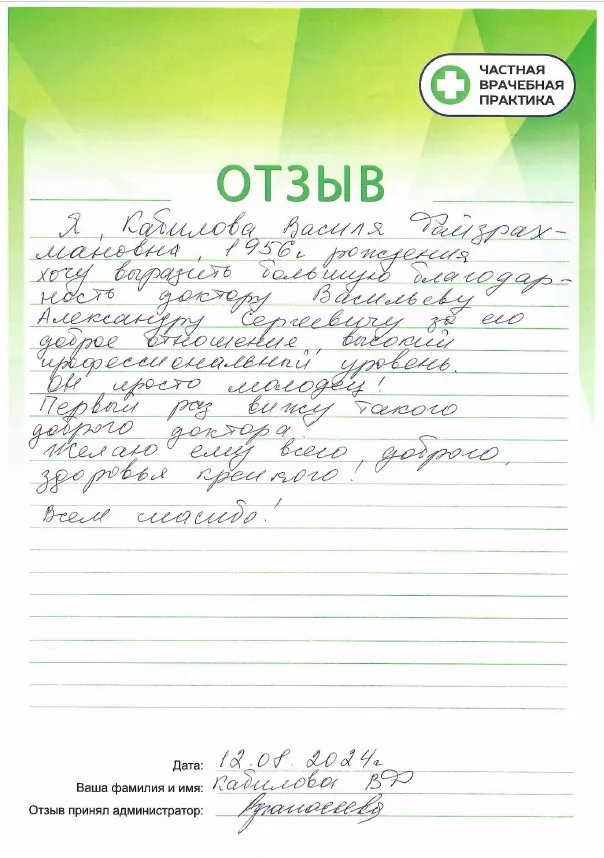 ЧАСТНАЯ
ВРАЧЕБНАЯ
ПРАКТИКА
ОТЗЫВ
Я, Кабилова Василя Файзрах-
мановна, 1956г рождения
хочу выразить большую благодар-
ность доктору Васильеву
Александру Сергеевичу за его
доброе отношение, высокий
профессиональный уровень.
Он просто молодец!
Первый раз вижу такого
доброго доктора.
Желаю ему всего доброго,
здоровья крепкого!
Всем спасибо!
Дата: 12.08.2024г
Ваша фамилия и имя: Кабилова ВФ
Отзыв принял администратор: